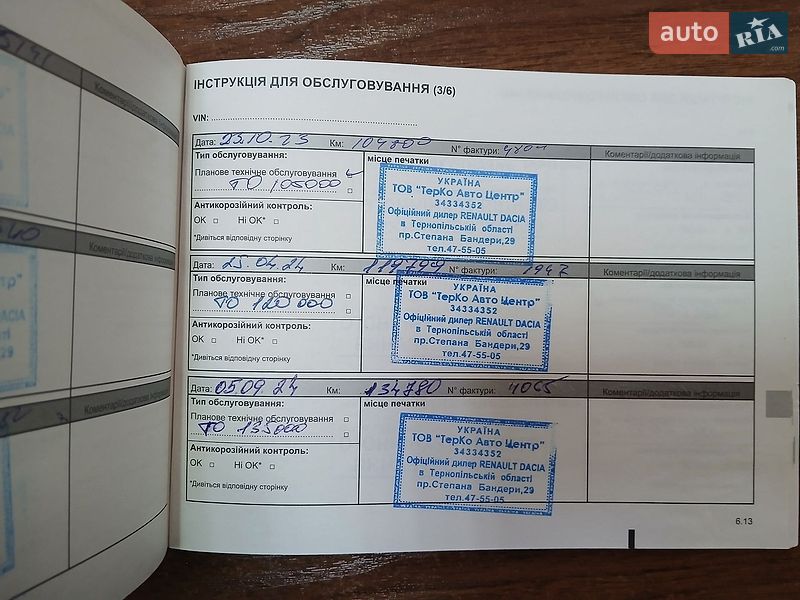 auto RIA .com
ІНСТРУКЦІЯ ДЛЯ ОБСЛУГОВУВАННЯ (3/6)
VIN:
Дата: 23.10.23 Км: 104800 N° фактури: Коментарі/додаткова інформація
Тип обслуговування: місце печатки
Планове технічне обслуговування
ТО 105000
Антикорозійний контроль:
OK Ні OK*
*Дивіться відповідну сторінку
УКРАЇНА
ТОВ "ТерКо Авто Центр"
34334352
Офіційний дилер RENAULT DACIA
в Тернопільській області
пр.Степана Бандери,29
тел.47-55-05
Дата: 25.04.24 Км: 119799 N° фактури: 1947 Коментарі/додаткова інформація
Тип обслуговування: місце печатки
Планове технічне обслуговування
ТО 120000
Антикорозійний контроль:
OK Ні OK*
*Дивіться відповідну сторінку
УКРАЇНА
ТОВ "ТерКо Авто Центр"
34334352
Офіційний дилер RENAULT DACIA
в Тернопільській області
пр.Степана Бандери,29
тел.47-55-05
Дата: 05.09 24 Км: 134780 N° фактури: 4065 Коментарі/додаткова інформація
Тип обслуговування: місце печатки
Планове технічне обслуговування
ТО 135000
Антикорозійний контроль:
OK Ні OK*
*Дивіться відповідну сторінку
УКРАЇНА
ТОВ "ТерКо Авто Центр"
34334352
Офіційний дилер RENAULT DACIA
в Тернопільській області
пр.Степана Бандери,29
тел.47-55-05
6.13
Коментарі/додаткова
Коментарі/додаткова
Коментарі/додаткова